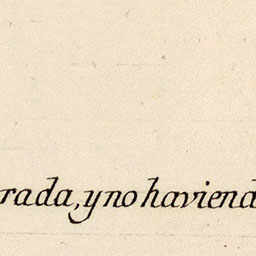 rada, y no haviend